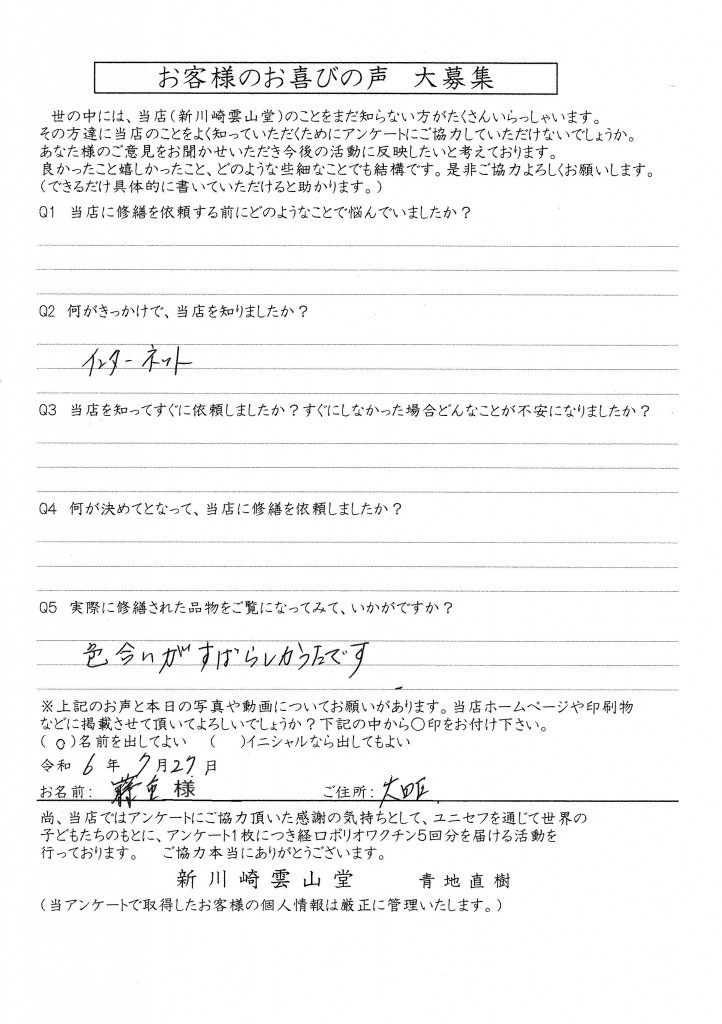 お客様のお喜びの声 大募集
世の中には、当店(新川崎雲山堂)のことをまだ知らない方がたくさんいらっしゃいます。
その方達に当店のことをよく知っていただくためにアンケートにご協力していただけないでしょうか。
あなた様のご意見をお聞かせいただき今後の活動に反映したいと考えております。
良かったこと嬉しかったこと、どのような些細なことでも結構です。是非ご協力よろしくお願いします。
(できるだけ具体的に書いていただけると助かります。)
Q1 当店に修繕を依頼する前にどのようなことで悩んでいましたか?
Q2 何がきっかけで、当店を知りましたか?
インターネット
Q3 当店を知ってすぐに依頼しましたか?すぐにしなかった場合どんなことが不安になりましたか?
Q4 何が決めてとなって、当店に修繕を依頼しましたか?
Q5 実際に修繕された品物をご覧になってみて、いかがですか?
色合いがすばらしかったです
※上記のお声と本日の写真や動画についてお願いがあります。当店ホームページや印刷物
などに掲載させて頂いてよろしいでしょうか?下記の中から○印をお付け下さい。
(○)名前を出してよい ( )イニシャルなら出してもよい
令和 6 年 7 月 27 日
お名前: 様 ご住所: 大田区
尚、当店ではアンケートにご協力頂いた感謝の気持ちとして、ユニセフを通じて世界の
子どもたちのもとに、アンケート1枚につき経口ポリオワクチン5回分を届ける活動を
行っております。 ご協力本当にありがとうございます。
新川崎雲山堂 青地直樹
(当アンケートで取得したお客様の個人情報は厳正に管理いたします。)